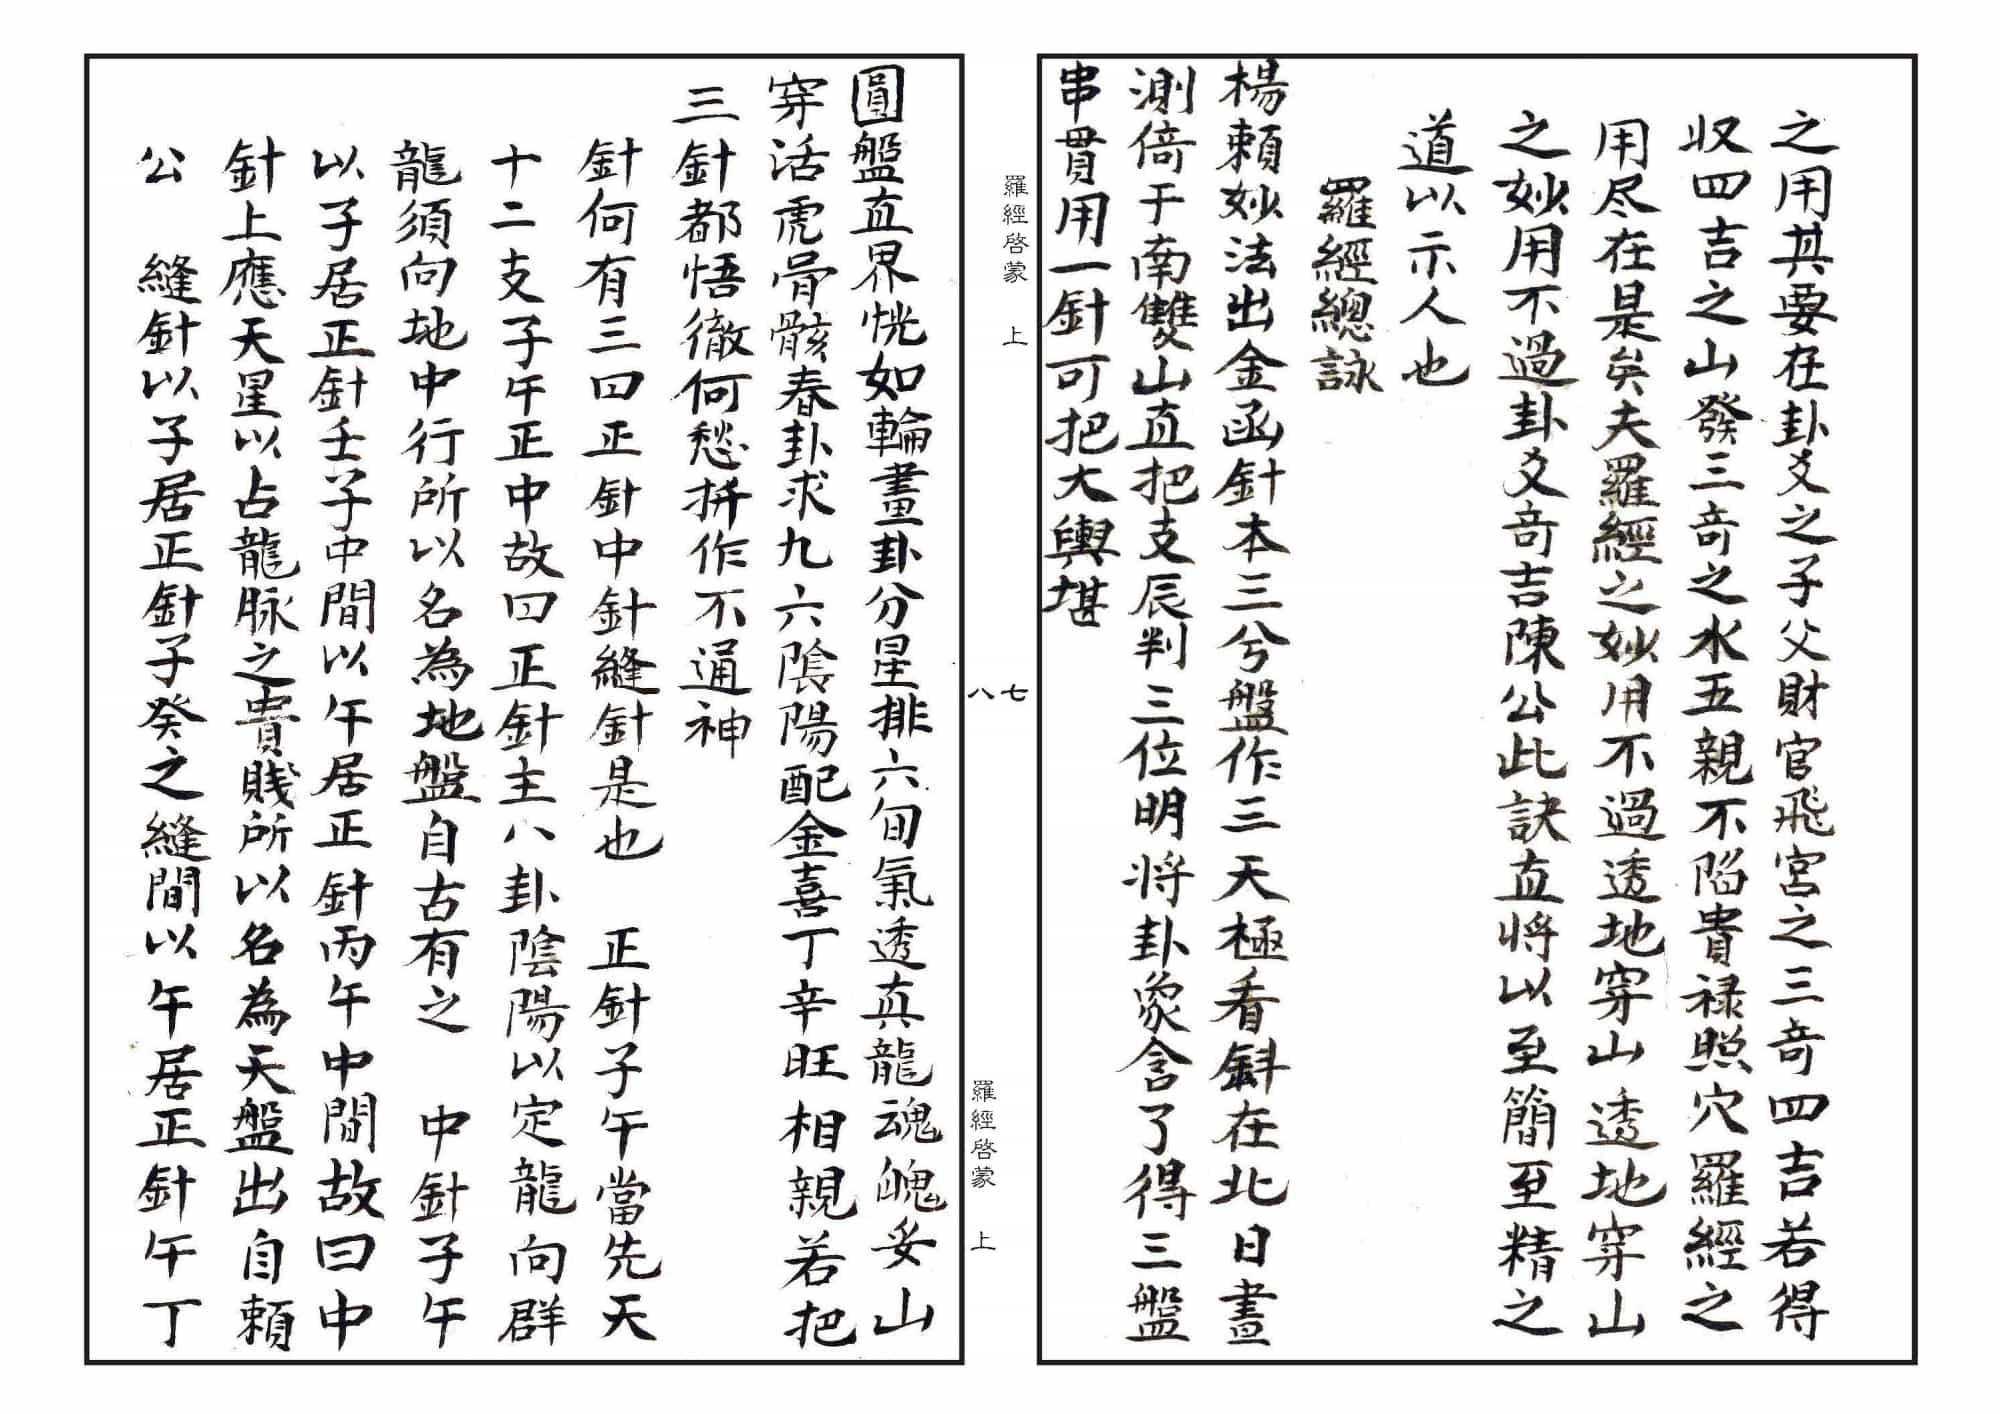 之用其要在卦爻之子父財官飛宮之三竒四吉若得
収四吉之山發三竒之水五親不陷貴祿照穴羅經之
用尽在是矣夫羅經之妙用不過透地穿山透地穿山
之妙用不過卦爻竒吉陳公此訣直將以至簡至精之
道以示人也
羅經總詠
楊頼妙法出金函針本三兮盤作三天極看斜在北日晝
測倚于南雙山直把支辰判三位明将卦象含了得三盤
串貫用一針可把大輿堪
羅經啓蒙 上
七
八
羅經啓蒙 上
圓盤直界恍如輪畫卦分星排六旬氣透真龍魂魄妥山
穿活虎骨骸春卦求九六陰陽配金喜丁辛旺相親若把
三針都悟徹何愁拼作不通神
針何有三曰正針中針縫針是也 正針子午當先天
十二支子午正中故曰正針主八卦陰陽以定龍向群
龍須向地中行所以名為地盤自古有之 中針子午
以子居正針壬子中間以午居正針丙午中間故曰中
針上應天星以占龍脉之貴賤所以名為天盤出自頼
公 縫針以子居正針子癸之縫間以午居正針午丁